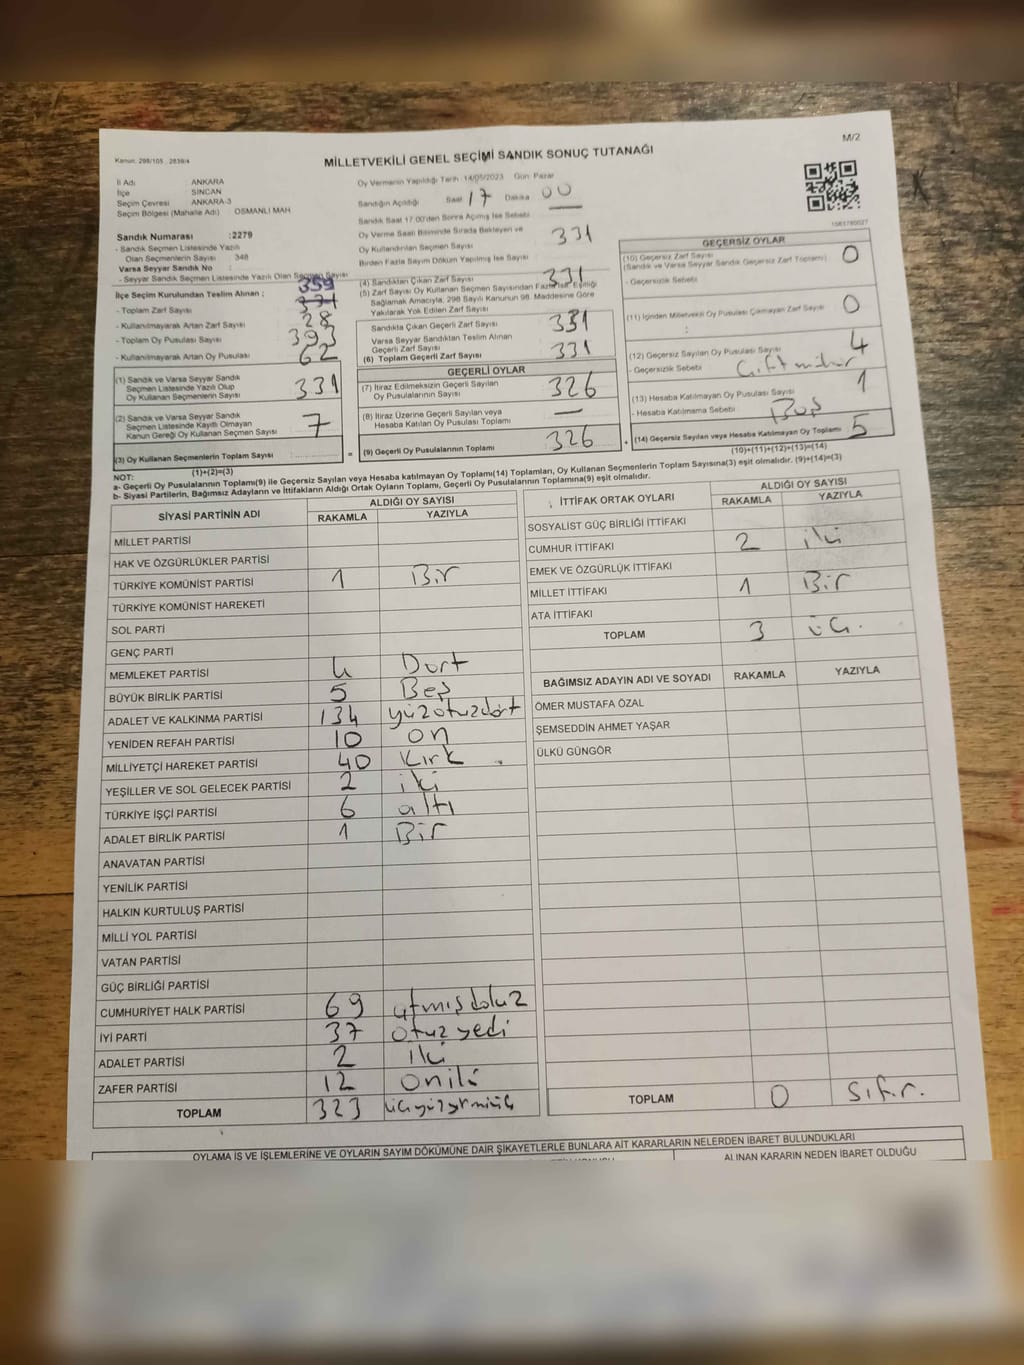 M/2
Kanun: 298/105 , 2839/4
MİLLETVEKİLİ GENEL SEÇİMİ SANDIK SONUÇ TUTANAĞI
İl Adı : ANKARA
İlçe : SİNCAN
Seçim Çevresi : ANKARA-3
Seçim Bölgesi (Mahalle Adı) : OSMANLI MAH
Sandık Numarası :2279
- Sandık Seçmen Listesinde Yazılı
Olan Seçmenlerin Sayısı : 348
Varsa Seyyar Sandık No :
- Seyyar Sandık Seçmen Listesinde Yazılı Olan Seçmen Sayısı
İlçe Seçim Kurulundan Teslim Alınan : 359
- Toplam Zarf Sayısı
- Kullanılmayarak Artan Zarf Sayısı 28
- Toplam Oy Pusulası Sayısı 393
- Kullanılmayarak Artan Oy Pusulası 62
(1) Sandık ve Varsa Seyyar Sandık
Seçmen Listesinde Yazılı Olup
Oy Kullanan Seçmenlerin Sayısı 331
(2) Sandık ve Varsa Seyyar Sandık
Seçmen Listesinde Kayıtlı Olmayan
Kanun Gereği Oy Kullanan Seçmen Sayısı 7
(3) Oy Kullanan Seçmenlerin Toplam Sayısı :
(1)+(2)=(3)
Oy Vermenin Yapıldığı Tarih :14/05/2023 Gün: Pazar
Sandığın Açıldığı Saat 17 Dakika 00
Sandık Saat 17.00'den Sonra Açılmış İse Sebebi
Oy Verme Saati Bitiminde Sırada Bekleyen ve
Oy Kullandırılan Seçmen Sayısı 331
Birden Fazla Sayım Döküm Yapılmış İse Sayısı
(4) Sandıktan Çıkan Zarf Sayısı 331
(5) Zarf Sayısı Oy Kullanan Seçmen Sayısından Fazla İse, Eşitliği
Sağlamak Amacıyla, 298 Sayılı Kanunun 98. Maddesine Göre
Yakılarak Yok Edilen Zarf Sayısı
Sandıkta Çıkan Geçerli Zarf Sayısı 331
Varsa Seyyar Sandıktan Teslim Alınan
Geçerli Zarf Sayısı
(6) Toplam Geçerli Zarf Sayısı 331
GEÇERLİ OYLAR
(7) İtiraz Edilmeksizin Geçerli Sayılan
Oy Pusulalarının Sayısı 326
(8) İtiraz Üzerine Geçerli Sayılan veya
Hesaba Katılan Oy Pusulası Toplamı —
(9) Geçerli Oy Pusulalarının Toplamı 326
1561780027
GEÇERSİZ OYLAR
(10) Geçersiz Zarf Sayısı 0
(Sandık ve Varsa Seyyar Sandık Geçersiz Zarf Toplamı)
- Geçersizlik Sebebi :
(11) İçinden Milletvekili Oy Pusulası Çıkmayan Zarf Sayısı 0
(12) Geçersiz Sayılan Oy Pusulası Sayısı 4
- Geçersizlik Sebebi Çift mühür
(13) Hesaba Katılmayan Oy Pusulası Sayısı 1
- Hesaba Katılmama Sebebi : Boş
(14) Geçersiz Sayılan veya Hesaba Katılmayan Oy Toplamı 5
(10)+(11)+(12)+(13)=(14)
NOT:
a- Geçerli Oy Pusulalarının Toplamı(9) ile Geçersiz Sayılan veya Hesaba katılmayan Oy Toplamı(14) Toplamları, Oy Kullanan Seçmenlerin Toplam Sayısına(3) eşit olmalıdır. (9)+(14)=(3)
b- Siyasi Partilerin, Bağımsız Adayların ve İttifakların Aldığı Ortak Oyların Toplamı, Geçerli Oy Pusulalarının Toplamına(9) eşit olmalıdır.
SİYASİ PARTİNİN ADI ALDIĞI OY SAYISI
RAKAMLA YAZIYLA
MİLLET PARTİSİ
HAK VE ÖZGÜRLÜKLER PARTİSİ
TÜRKİYE KOMÜNİST PARTİSİ 1 Bir
TÜRKİYE KOMÜNİST HAREKETİ
SOL PARTİ
GENÇ PARTİ
MEMLEKET PARTİSİ 4 Dört
BÜYÜK BİRLİK PARTİSİ 5 Beş
ADALET VE KALKINMA PARTİSİ 134 yüzotuzdört
YENİDEN REFAH PARTİSİ 10 on
MİLLİYETÇİ HAREKET PARTİSİ 40 Kırk
YEŞİLLER VE SOL GELECEK PARTİSİ 2 iki
TÜRKİYE İŞÇİ PARTİSİ 6 altı
ADALET BİRLİK PARTİSİ 1 Bir
ANAVATAN PARTİSİ
YENİLİK PARTİSİ
HALKIN KURTULUŞ PARTİSİ
MİLLİ YOL PARTİSİ
VATAN PARTİSİ
GÜÇ BİRLİĞİ PARTİSİ
CUMHURİYET HALK PARTİSİ 69 atmışdokuz
İYİ PARTİ 37 otuz yedi
ADALET PARTİSİ 2 iki
ZAFER PARTİSİ 12 oniki
TOPLAM 323 üçyüzyirmiüç
İTTİFAK ORTAK OYLARI ALDIĞI OY SAYISI
RAKAMLA YAZIYLA
SOSYALİST GÜÇ BİRLİĞİ İTTİFAKI
CUMHUR İTTİFAKI 2 iki
EMEK VE ÖZGÜRLÜK İTTİFAKI
MİLLET İTTİFAKI 1 Bir
ATA İTTİFAKI
TOPLAM 3 üç.
BAĞIMSIZ ADAYIN ADI VE SOYADI RAKAMLA YAZIYLA
ÖMER MUSTAFA ÖZAL
ŞEMSEDDİN AHMET YAŞAR
ÜLKÜ GÜNGÖR
TOPLAM 0 Sıfır.
OYLAMA İŞ VE İŞLEMLERİNE VE OYLARIN SAYIM DÖKÜMÜNE DAİR ŞİKAYETLERLE BUNLARA AİT KARARLARIN NELERDEN İBARET BULUNDUKLARI
ALINAN KARARIN NEDEN İBARET OLDUĞU